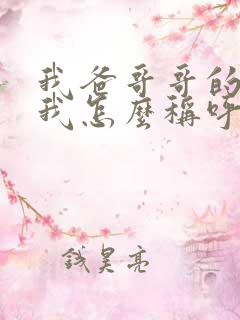 我爸哥哥的
我怎麼稱呼
錢昊亮